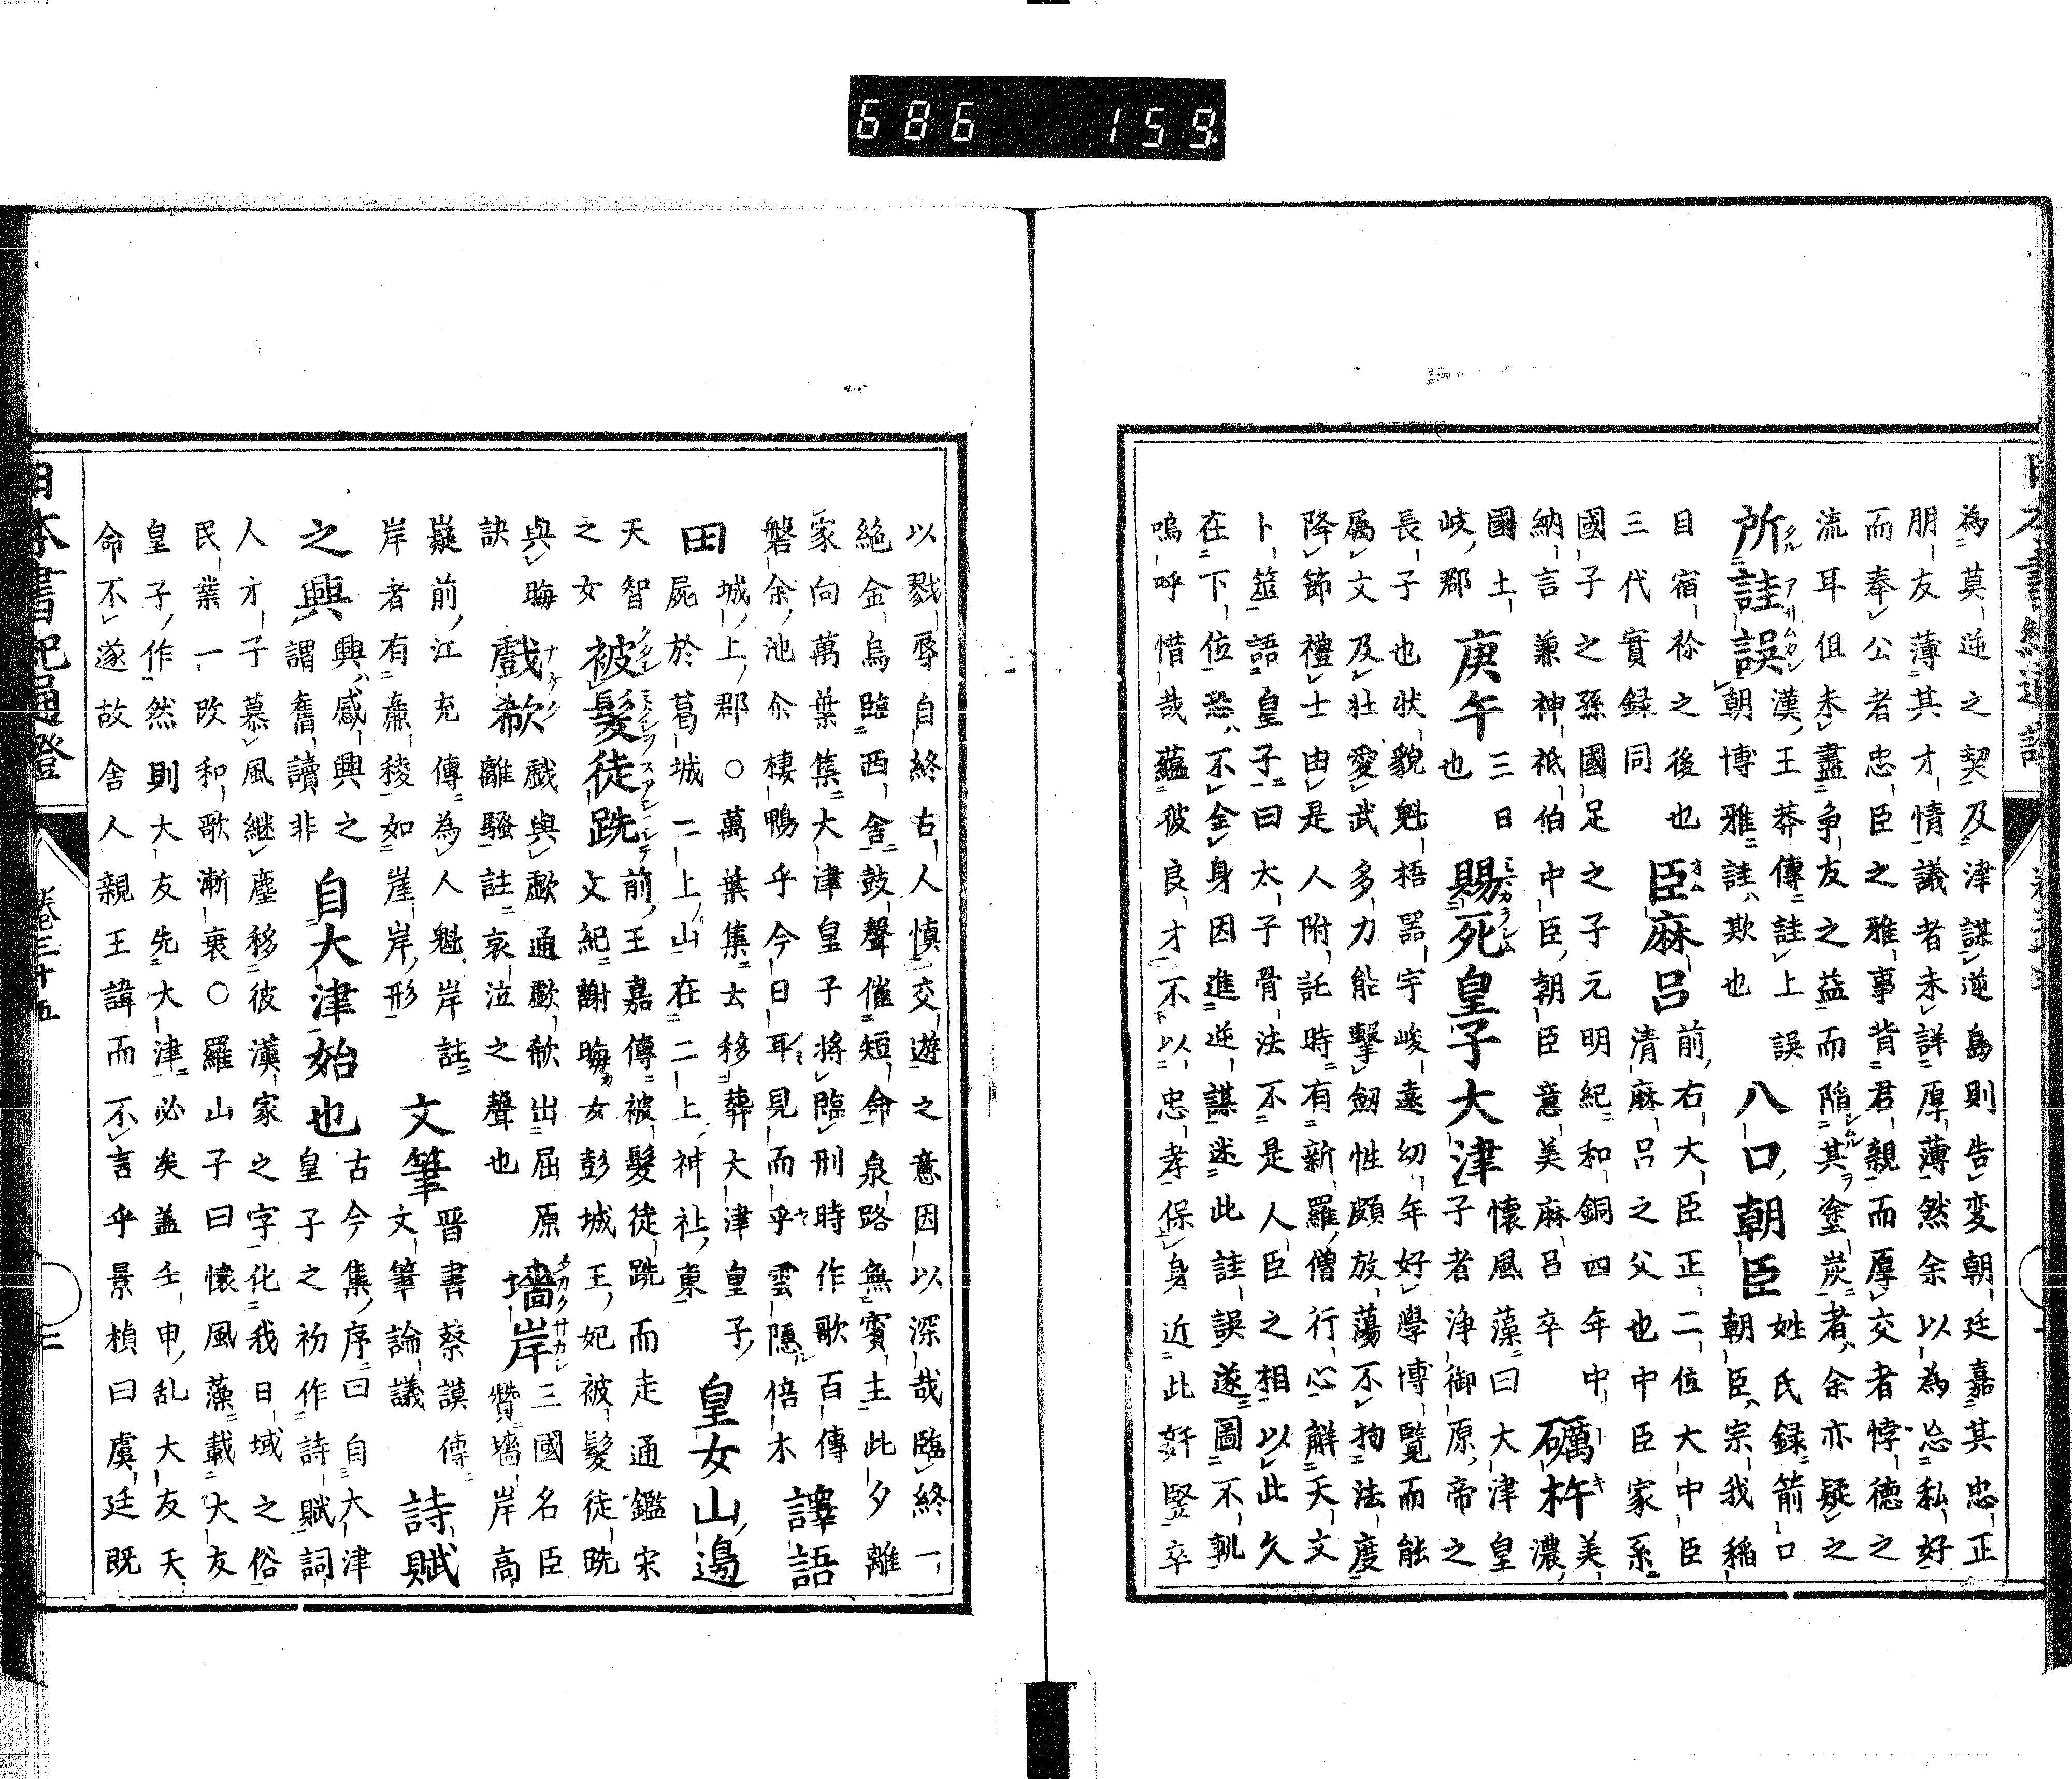 686 159
為莫逆之契及津謀逆島則告変朝廷嘉其忠正
朋友薄其才情議者未詳厚薄然余以為忘私好
而奉公者忠臣之雅事背君親而厚交者悖徳之
流耳但未盡争友之益而陥其塗炭者余亦疑之
所詿誤 漢王莽傳詿上誤朝博雅詿欺也 八口朝臣 姓氏録箭口朝臣宗我稲
目宿祢之後也三代實録同 臣麻呂 前右大臣正二位大中臣清麻呂之父也中臣家系
國子之孫國足之子元明紀和銅四年中納言兼神祇伯中臣朝臣意美麻呂卒 礪杵 美濃
國土岐郡 庚午 三日也 賜死皇子大津 懷風藻曰大津皇子者浄御原帝之
長子也状貌魁梧器宇峻遠幼年好學博覧而能
属文及壮愛武多力能擊劔性頗放蕩不拘法度
降節禮士由是人附託時有新羅僧行心解天文
卜筮語皇子曰太子骨法不是人臣之相以此久
在下位恐不全身因進逆謀迷此詿誤遂圖不軌
嗚呼惜哉蘊彼良才不以忠孝保身近此奸竪卒
以戮辱自終古人慎交遊之意因以深哉臨終一
絶金烏臨西舎鼓聲催短命泉路無賓主此夕離
家向萬葉集大津皇子将臨刑時作歌百傳
磐余池尒棲鴨乎今日耳見而乎雲隠倍木 譯語
田 城上郡○萬葉集云移葬大津皇子屍於葛城二上山在二上神社東 皇女山邊
天智之女 被髮徒跣 前王嘉傳被髮徒跣而走通鑑宋文紀謝晦女彭城王妃被髮徒跣
與晦訣 戲欷 戯與歔通歔欷出屈原離騒註哀泣之聲也 墻岸 三國名臣賛墻岸高
嶷前江充傳為人魁岸註岸者有廉稜如崖岸形 文筆 晋書蔡謨傳文筆論議 詩賦
之興 興感興之謂舊讀非 自大津始也 古今集序曰自大津皇子之初作詩賦詞
人才子慕風継塵移彼漢家之字化我日域之俗
民業一改和歌漸衰○羅山子曰懷風藻載大友
皇子作然則大友先大津必矣盖壬申乱大友天
命不遂故舎人親王諱而不言乎景楨曰虞廷既
日本書紀通證 卷三十五 二